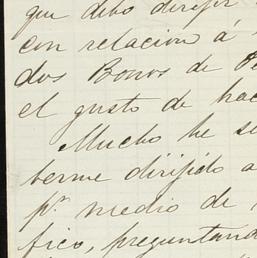 que debo dirijir
con relacion á
dos Bonos de
el gusto de hac
Mucho he
berme dirijido a
pr. medio de
fico, preguntand